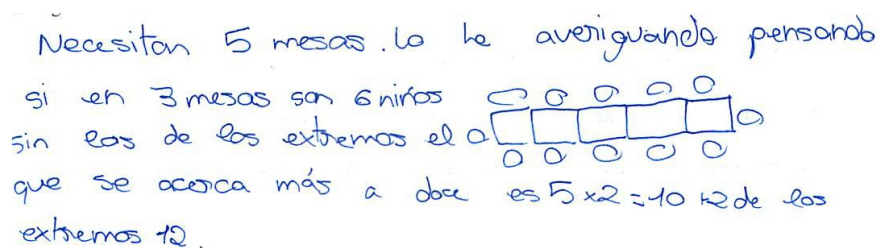 Necesitan 5 mesas. lo he averiguando pensando
si en 3 mesas son 6 niños
sin los de los extremos el
que se acerca más a doce es 5x2=10 +2 de los
extremos 12.